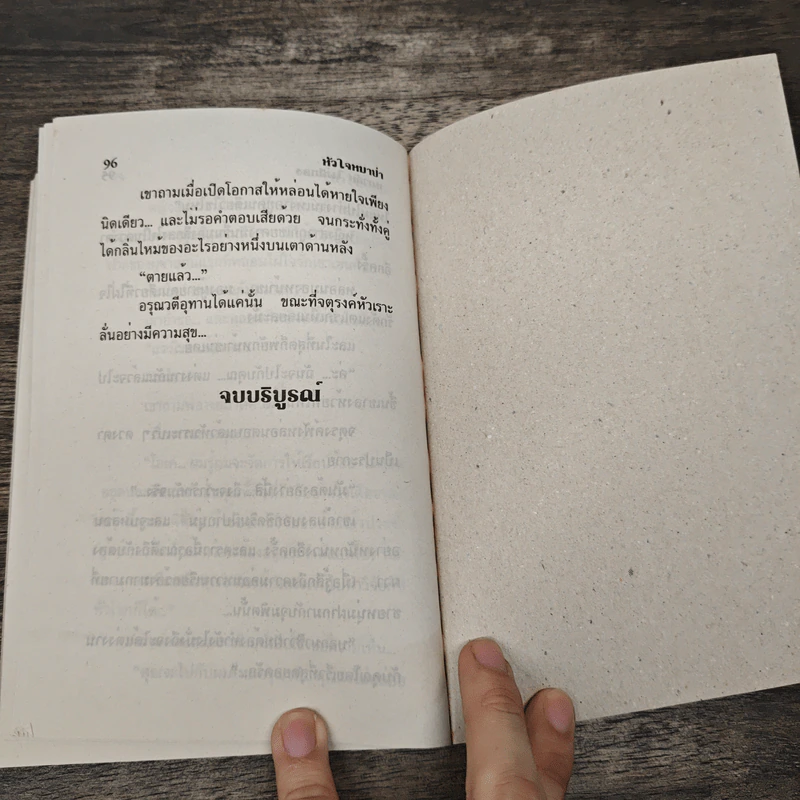 96
หัวใจหมาบ่า
เขาถามเมื่อเปิดโอกาสให้หล่อนได้หายใจเพียง
นิดเดียว... และไม่รอคำตอบเสียด้วย จนกระทั่งทั้งคู่
ได้กลิ่นไหม้ของอะไรอย่างหนึ่งบนเตาด้านหลัง
“ตายแล้ว...”
อรุณวตีอุทานได้แค่นั้น ขณะที่จตุรงค์หัวเราะ
ลั่นอย่างมีความสุข...
จบบริบูรณ์